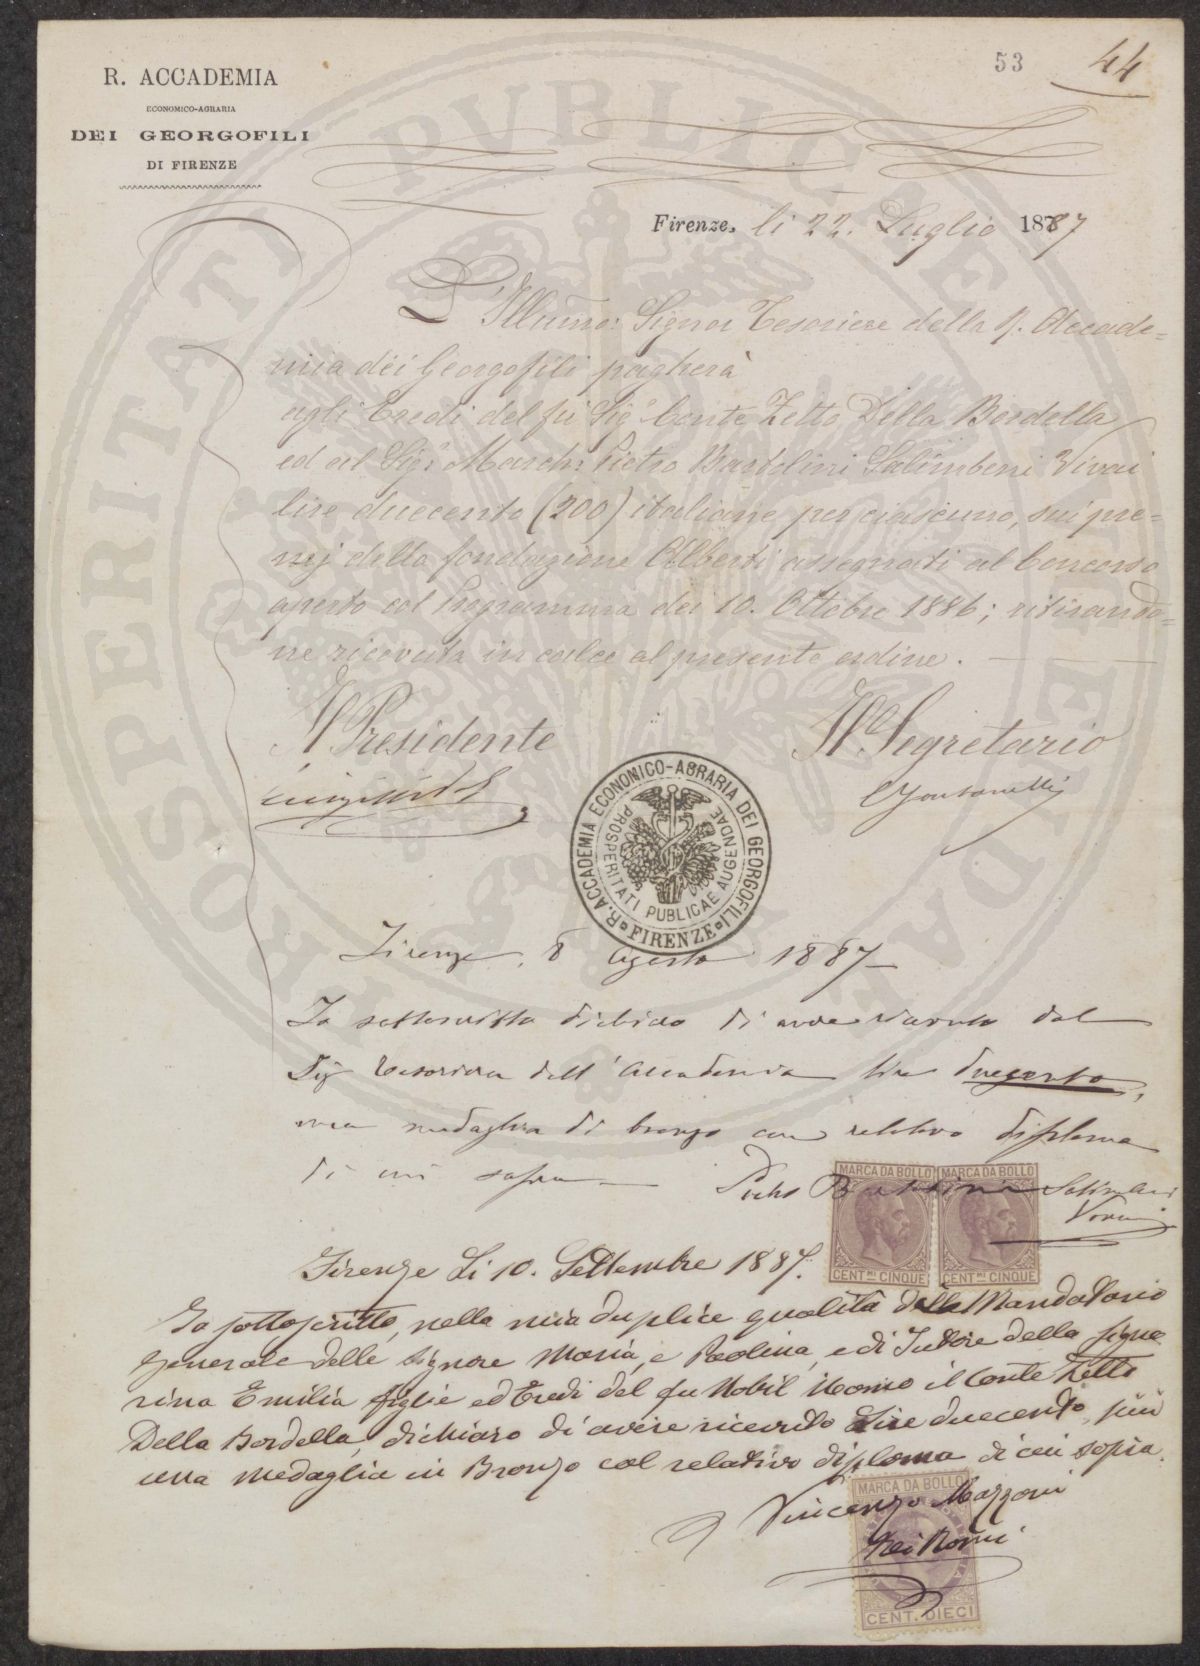 53
44
R. ACCADEMIA
ECONOMICO-AGRARIA
DEI GEORGOFILI
DI FIRENZE
Firenze, li 22. Luglio 1887
L'Illumo: Signor Tesoriere della R. Accade=
mia dei Georgofili pagherà
agli Eredi del fù Sigr Conte Zetto Della Bordella
ed al Sigr March: Pietro Bartolini Salimbeni Vivai
lire duecento (200) italiane per ciascuno, sui pre=
mj della fondazione Alberti assegnati al Concorso
aperto col Programma dei 10. Ottobre 1886; ritirando=
ne ricevuta in calce al presente ordine.
Il Presidente
Il Segretario
R. ACCADEMIA ECONOMICO-AGRARIA DEI GEORGOFILI
FIRENZE
PROSPERITATI PUBLICAE AUGENDAE
Firenze, 8 Agosto 1887
Io sottoscritto dichiaro di avere ricevuto dal
Sig Tesoriere dell'Accademia lire duecento,
una medaglia di bronzo con relativo diploma
di cui sopra
Pietro Bartolini Salimbeni
Vivai
MARCA DA BOLLO
CENT.MI CINQUE
MARCA DA BOLLO
CENT.MI CINQUE
Firenze Li 10. Settembre 1887.
Io sottoscritto, nella mia duplice qualità di Mandatario
Generale delle Signore Maria, e Paolina, e di Tutore della Signo
rina Emilia figlie ed Eredi del fu Nobil Uomo il Conte Zetto
Della Bordella, dichiaro di avere ricevuto Lire duecento, più
una medaglia in Bronzo col relativo diploma di cui sopra.
Vincenzo Mazzoni
MARCA DA BOLLO
CENT. DIECI
PROSPERITATI PVBLICAE AVGENDAE